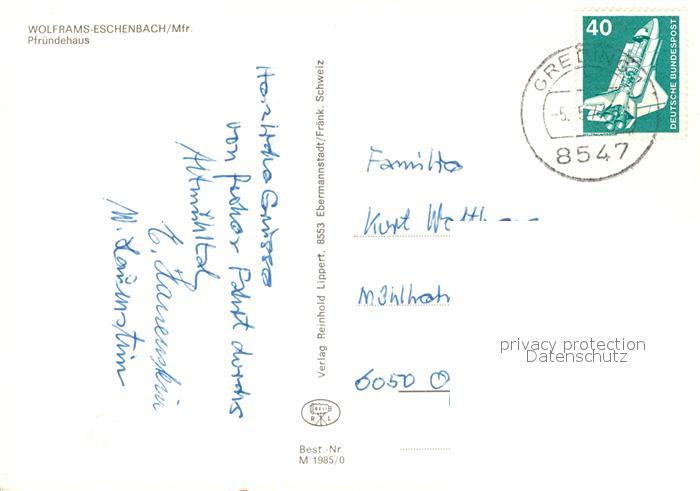 WOLFRAMS-ESCHENBACH/Mfr.
Pfründehaus
Herzliche Grüsse
von froher Fahrt durchs
Altmühltal
M. Lauenstein
Verlag Reinhold Lippert, 8553 Ebermannstadt/Fränk. Schweiz
R L
Best.-Nr.
M 1985/0
40
DEUTSCHE BUNDESPOST
GREDING
-5.
8547
Familie
Kurt
Mühlhei
6050 O
privacy protection
Datenschutz